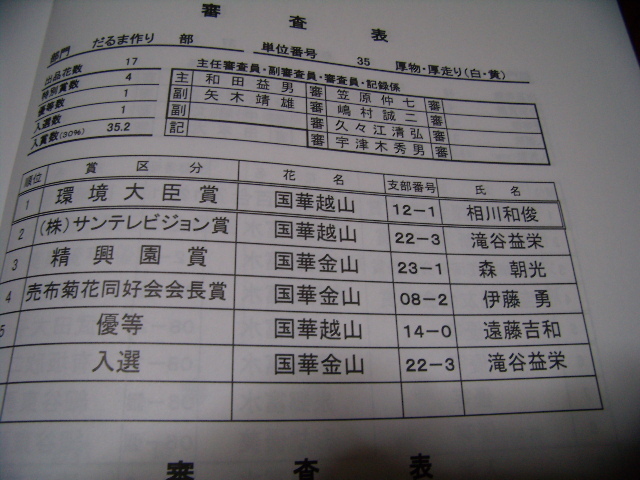 審査表
部門 だるま作り 部 単位番号 35 厚物・厚走り(白・黄)
出品花数 17 主任審査員・副審査員・審査員・記録係
特別賞数 4 主 和田益男 審 笠原仲七 審
優等数 1 副 矢木靖雄 審 嶋村誠二 審
入選数 1 副 審 久々江清弘 審
入賞数(30%) 35.2 記 審 宇津木秀男 審
順位 賞区分 花名 支部番号 氏名
1 環境大臣賞 国華越山 12-1 相川和俊
2 (株)サンテレビジョン賞 国華越山 22-3 滝谷益栄
3 精興園賞 国華金山 23-1 森 朝光
4 売布菊花同好会会長賞 国華金山 08-2 伊藤 勇
5 優等 国華越山 14-0 遠藤吉和
入選 国華金山 22-3 滝谷益栄
審査表